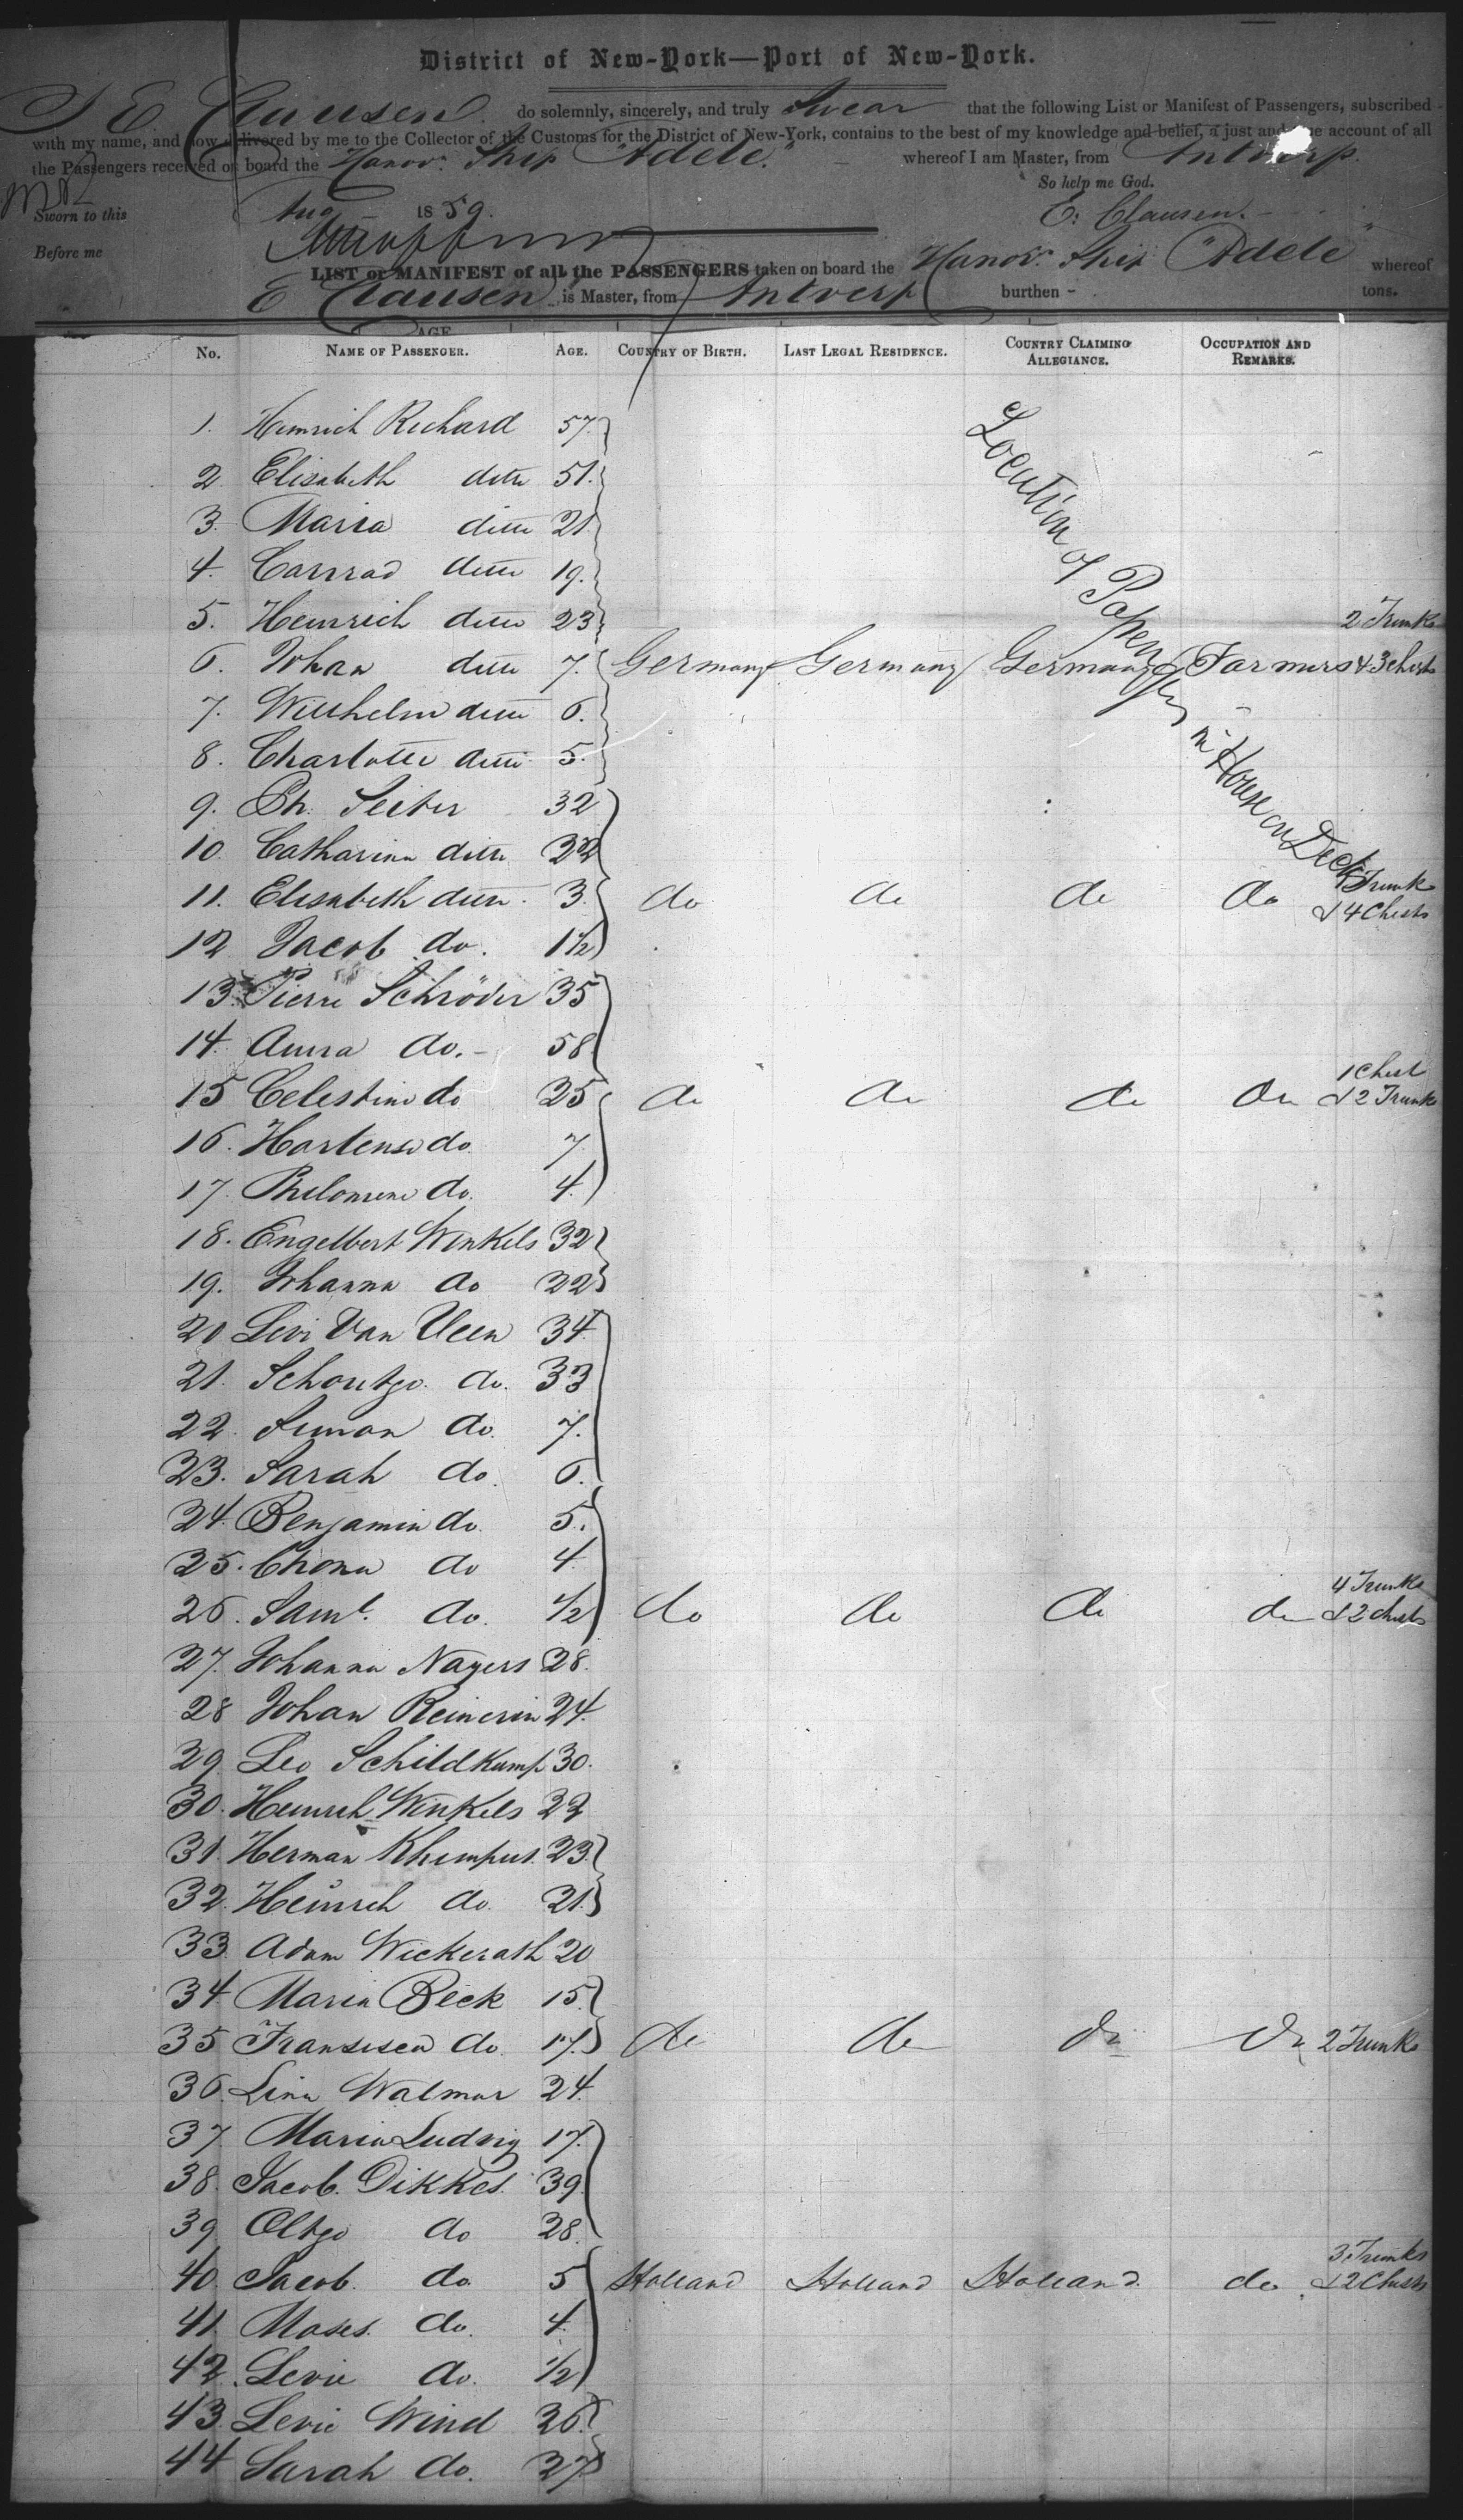 District of New-York—Port of New-York.
I E. Clausen do solemnly, sincerely, and truly Swear that the following List or Manifest of Passengers, subscribed
with my name, and now delivered by me to the Collector of the Customs for the District of New-York, contains to the best of my knowledge and belief, a just and true account of all
the Passengers received on board the Hanovr. Ship "Adele." whereof I am Master, from Antwerp.
So help me God.
Sworn to this Aug 1859.
E: Clausen.
Before me
LIST or MANIFEST of all the PASSENGERS taken on board the Hanovr. Ship "Adele" whereof
E Clausen is Master, from Antverp burthen - tons.
AGE
No. NAME OF PASSENGER. AGE. COUNTRY OF BIRTH. LAST LEGAL RESIDENCE. COUNTRY CLAIMING ALLEGIANCE. OCCUPATION AND REMARKS.
Location of Passengers in House on Deck
1. Heinrich Richard 57.
2 Elisabeth ditto 51.
3. Maria ditto 21
4. Conrad ditto 19.
5. Heinrich ditto 23 2 Trunks
6. Johan ditto 7. Germany Germany Germany Farmers & 3 chests
7. Wilhelm ditto 6.
8. Charlotte ditto 5.
9. Ph. Seiter 32
10. Catharina ditto 32
11. Elisabeth ditto. 3. do do do do Trunk & 4 Chests
12 Jacob do. 1½
13. Pierre Schröder 35
14. Anna do. - 58
15 Celestine do 25 do do do do 1 Chest & 2 Trunks
16. Hortense do 7
17. Philomene do. 4.
18. Engelbert Winkels 32
19. Johanna do 22
20 Levi Van Veen 34
21. Schontje do. 33
22. Simon do. 7.
23. Sarah do. 6.
24. Benjamin do. 5.
25. Chona do 4
26. Saml. do. ½ do do do do 4 Trunks & 2 chests
27. Johanna Nayers 28.
28 Johan Reinerin 24.
29 Leo Schildkamp 30.
30. Heinrch Winkels 22
31. Herman Khempus. 23.
32. Heinrch do. 21.
33. Adam Wickerath 20
34 Maria Beck 15.
35 Fransisca do. 17. do do do do 2 Trunks
36. Lina Walmar 24.
37 Maria Ludwig 17.
38. Jacob. Dikkes. 39.
39 Oltje do 28.
40. Jacob. do. 5 Holland Holland Holland. do 3 Trunks & 2 Chests
41. Moses. do. 4.
42. Levie do. ½
43. Levie Wind 26.
44 Sarah do. 27